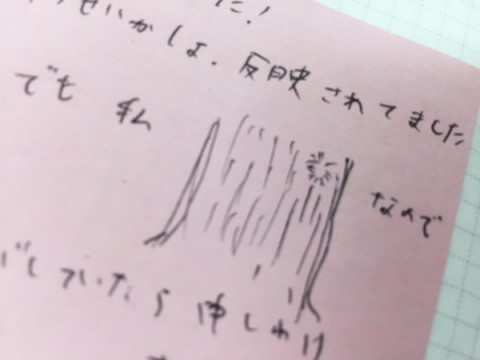 た!
せいかしょ、反映されてました
でも 私 なので
していたら 申しわけ